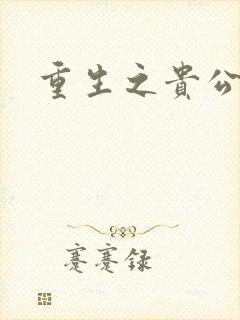 重生之貴公
蹇蹇錄